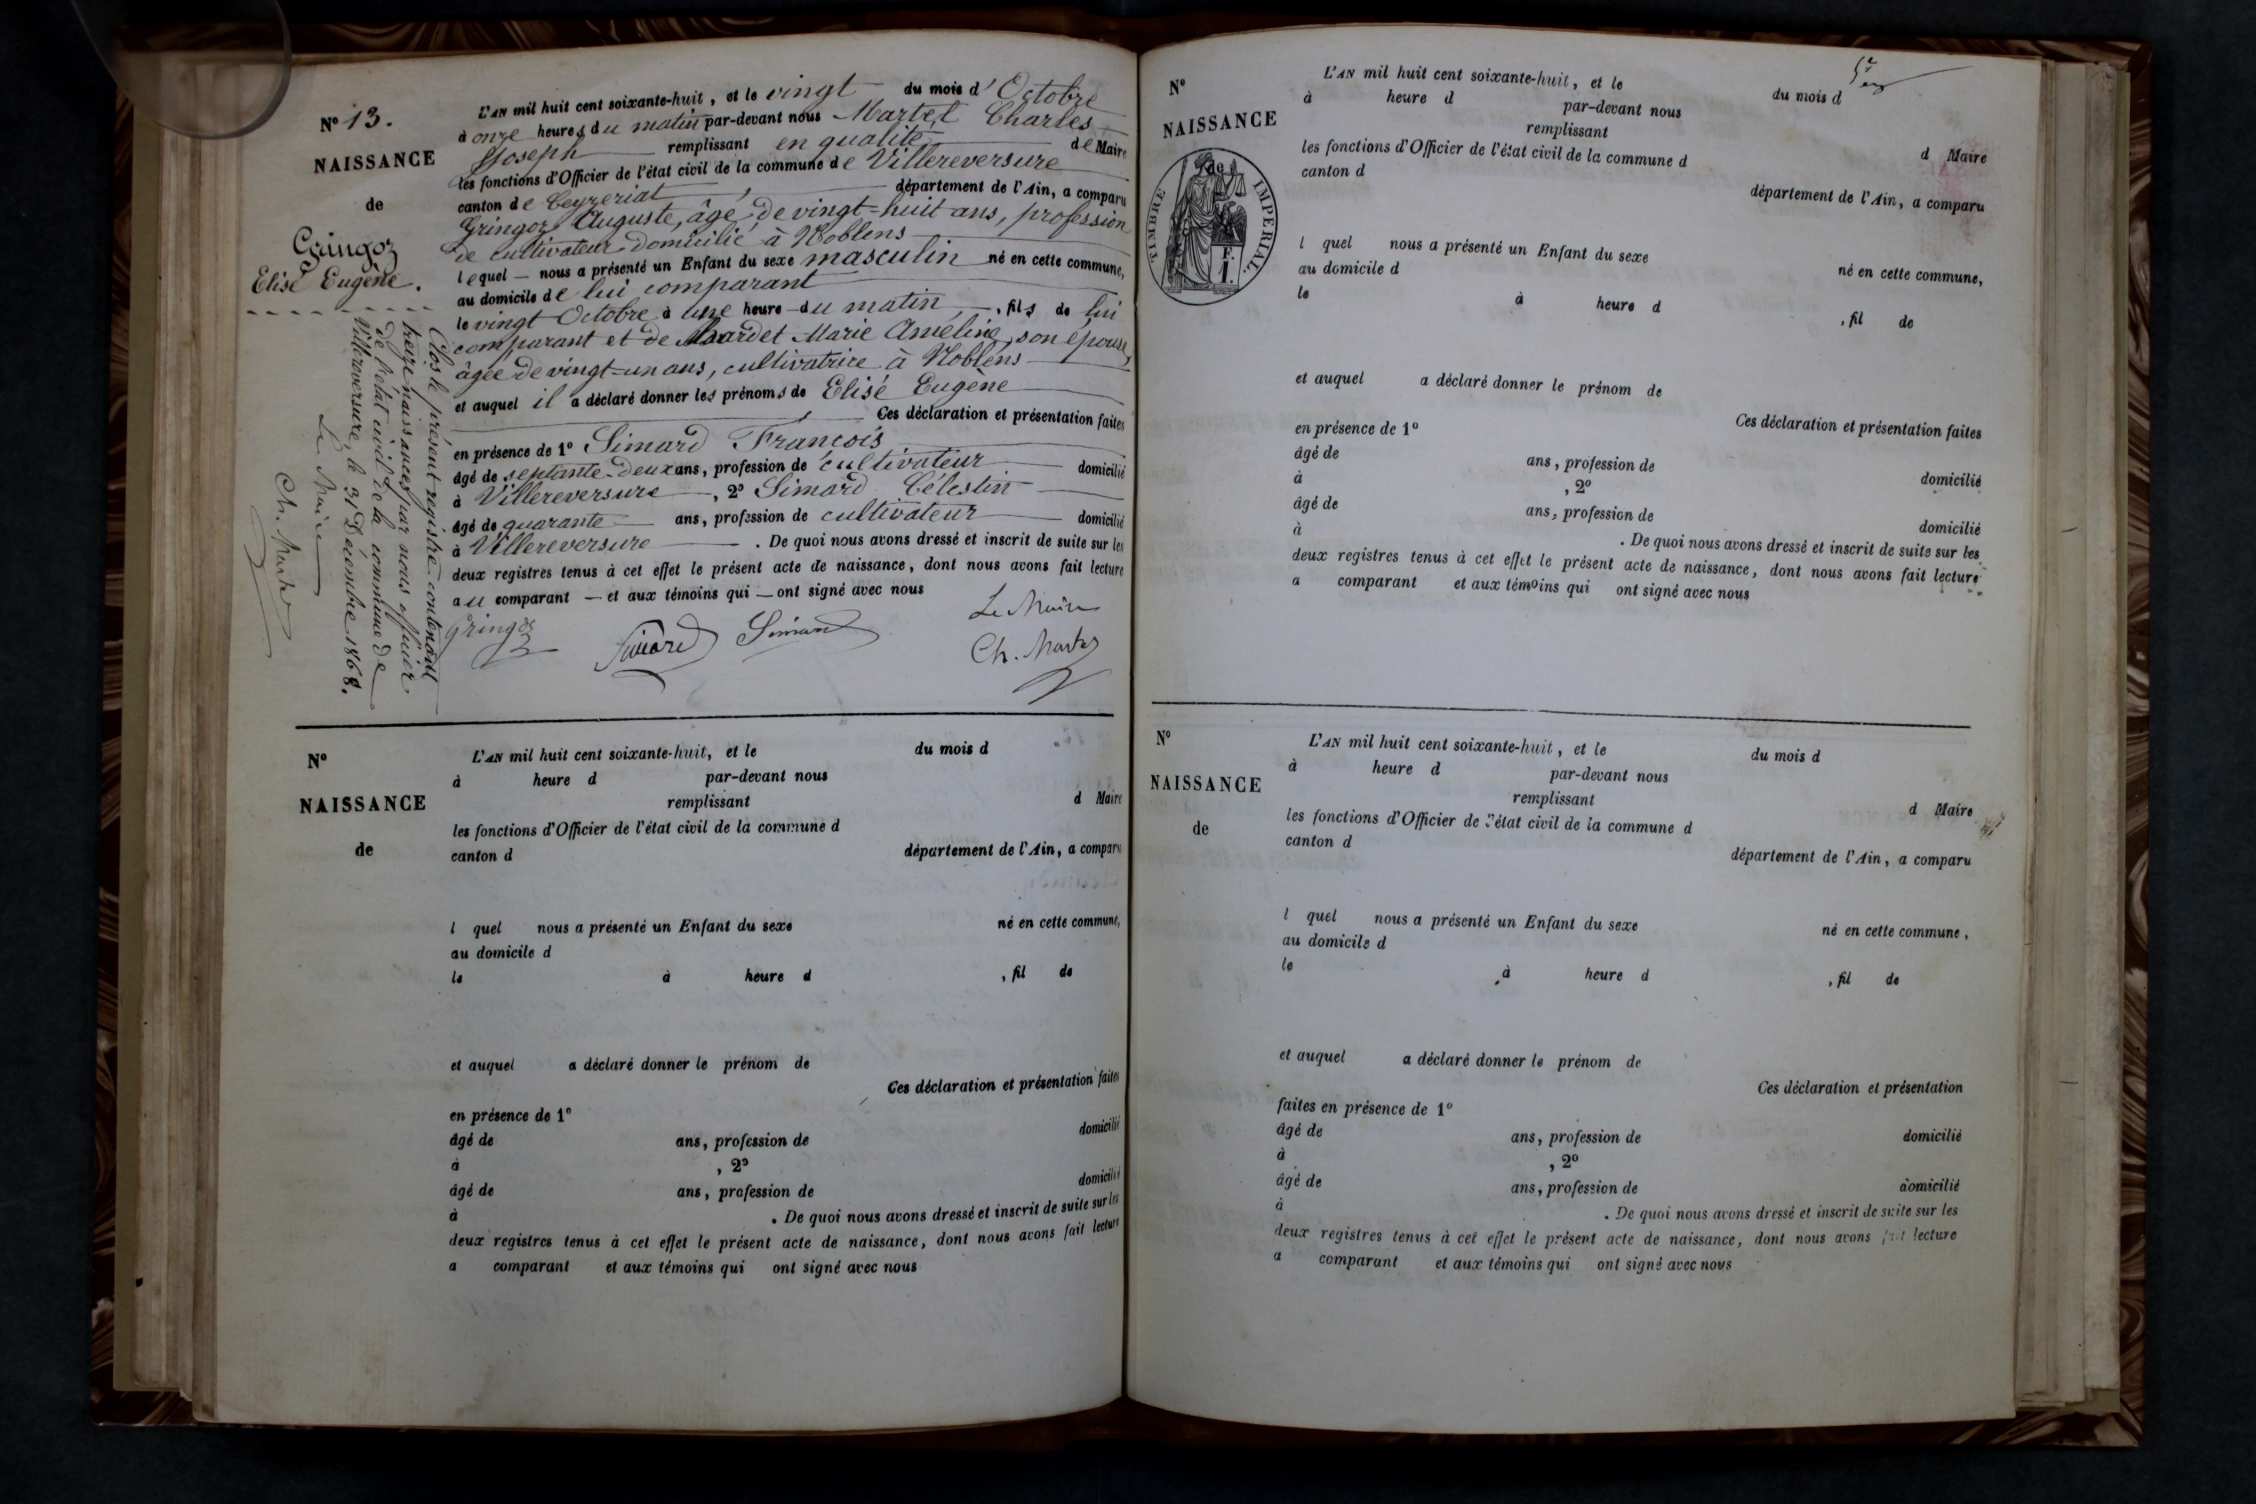 N° 13.
NAISSANCE
de
Gringoz
Elisé Eugène.
L'AN mil huit cent soixante-huit, et le vingt du mois d'Octobre
à onze heures du matin par-devant nous Martet Charles
Joseph remplissant en qualité de Maire
les fonctions d'Officier de l'état civil de la commune de Villereversure
canton de Ceyzeriat, département de l'Ain, a comparu
Gringoz Auguste, âgé de vingt-huit ans, profession
de cultivateur domicilié à Noblens
lequel nous a présenté un Enfant du sexe masculin né en cette commune,
au domicile de lui comparant
le vingt Octobre à une heure du matin, fils de lui
comparant et de Mardet Marie Ameline, son épouse,
âgée de vingt-un ans, cultivatrice à Noblens
et auquel il a déclaré donner les prénoms de Elisé Eugène
Ces déclaration et présentation faites
en présence de 1° Simard François
âgé de septante-deux ans, profession de cultivateur domicilié
à Villereversure, 2° Simard Célestin
âgé de quarante ans, profession de cultivateur domicilié
à Villereversure. De quoi nous avons dressé et inscrit de suite sur les
deux registres tenus à cet effet le présent acte de naissance, dont nous avons fait lecture
au comparant et aux témoins qui ont signé avec nous
Gringoz Simard Simard Le Maire
Ch. Martet
Clos le présent registre contenant
treize naissances par nous officier
de l'état civil de la commune de
Villereversure, le 31 Décembre 1868.
Le Maire
Ch. Martet
N°
NAISSANCE
de
L'AN mil huit cent soixante-huit, et le du mois d
à heure d par-devant nous
remplissant d Maire
les fonctions d'Officier de l'état civil de la commune d
canton d département de l'Ain, a comparu
l quel nous a présenté un Enfant du sexe né en cette commune,
au domicile d
le à heure d , fil de
et auquel a déclaré donner le prénom de
Ces déclaration et présentation faites
en présence de 1°
âgé de ans, profession de domicilié
à , 2°
âgé de ans, profession de domicilié
à . De quoi nous avons dressé et inscrit de suite sur les
deux registres tenus à cet effet le présent acte de naissance, dont nous avons fait lecture
a comparant et aux témoins qui ont signé avec nous
N°
NAISSANCE
de
TIMBRE IMPERIAL.
1 F.
L'AN mil huit cent soixante-huit, et le du mois d
à heure d par-devant nous
remplissant d Maire
les fonctions d'Officier de l'état civil de la commune d
canton d département de l'Ain, a comparu
l quel nous a présenté un Enfant du sexe né en cette commune,
au domicile d
le à heure d , fil de
et auquel a déclaré donner le prénom de
Ces déclaration et présentation faites
en présence de 1°
âgé de ans, profession de domicilié
à , 2°
âgé de ans, profession de domicilié
à . De quoi nous avons dressé et inscrit de suite sur les
deux registres tenus à cet effet le présent acte de naissance, dont nous avons fait lecture
a comparant et aux témoins qui ont signé avec nous
N°
NAISSANCE
de
L'AN mil huit cent soixante-huit, et le du mois d
à heure d par-devant nous
remplissant d Maire
les fonctions d'Officier de l'état civil de la commune d
canton d département de l'Ain, a comparu
l quel nous a présenté un Enfant du sexe né en cette commune,
au domicile d
le à heure d , fil de
et auquel a déclaré donner le prénom de
Ces déclaration et présentation
faites en présence de 1°
âgé de ans, profession de domicilié
à , 2°
âgé de ans, profession de domicilié
à . De quoi nous avons dressé et inscrit de suite sur les
deux registres tenus à cet effet le présent acte de naissance, dont nous avons fait lecture
a comparant et aux témoins qui ont signé avec nous